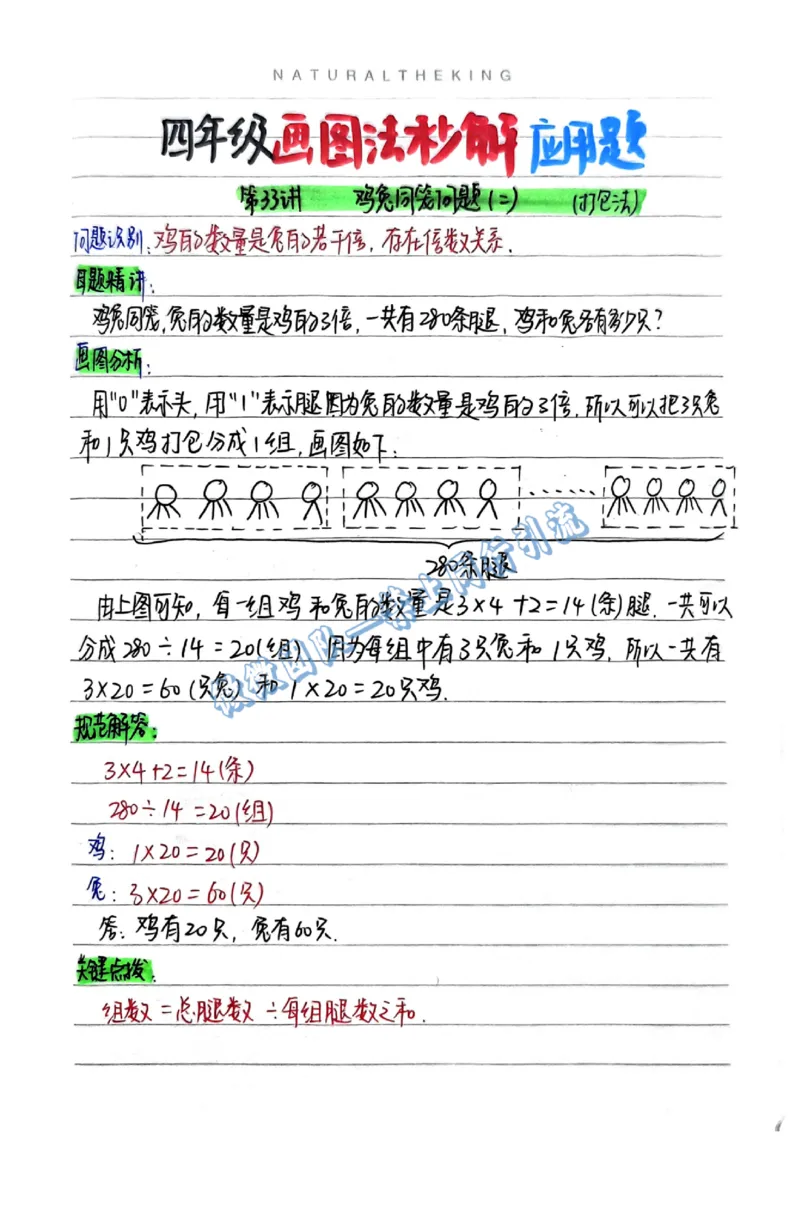 NATURALTHEKING
四年级画图法秒解应用题
第33讲 鸡兔同笼问题(二) (打包法)
问题识别:鸡的数量是兔的若干倍,存在倍数关系.
例题精讲:
鸡兔同笼,兔的数量是鸡的3倍,一共有280条腿,鸡和兔各有多少只?
画图分析:
用"0"表示头,用"1"表示腿因为兔的数量是鸡的3倍,所以可以把3只兔
和1只鸡打包分成1组,画图如下:
......
280条腿
由上图可知,每一组鸡和兔的数量是3×4+2=14(条)腿.一共可以
分成280÷14=20(组) 因为每组中有3只兔和1只鸡,所以一共有
3×20=60(只兔)和1×20=20只鸡.
规范解答:
3×4+2=14(条)
280÷14=20(组)
鸡:1×20=20(只)
兔:3×20=60(只)
答:鸡有20只,兔有60只.
关键点拨:
组数=总腿数÷每组腿数之和.